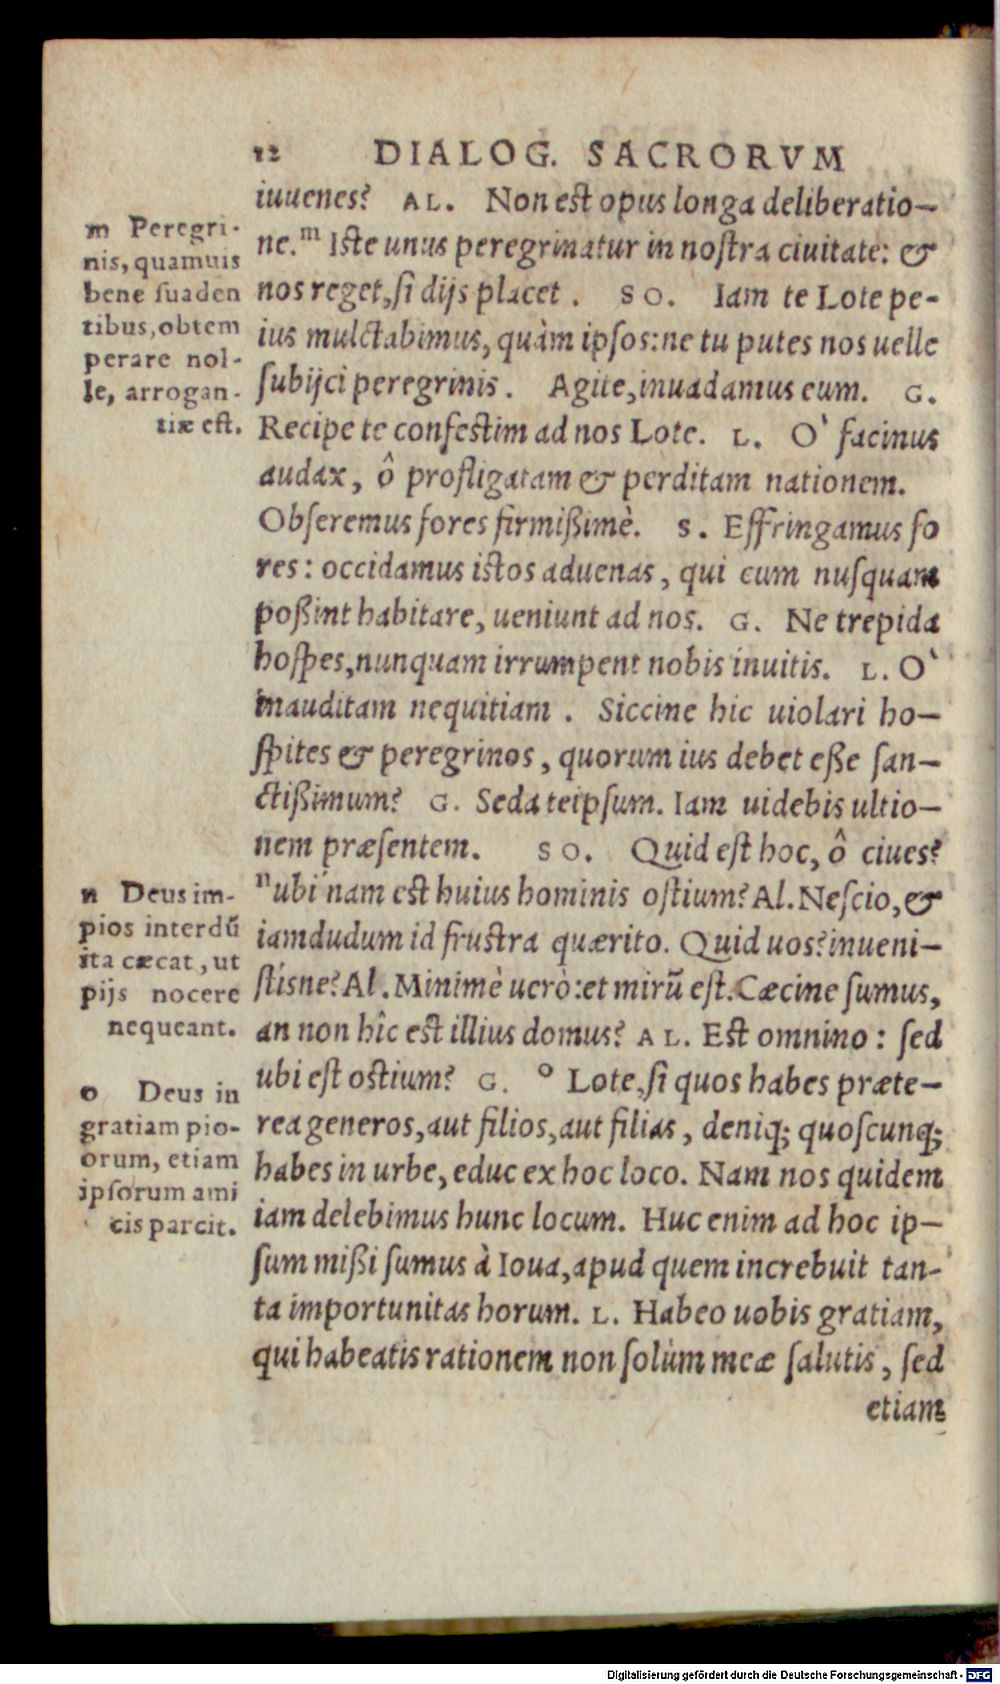 12 DIALOG. SACRORVM
iuuenes? AL. Non est opus longa deliberatio–
ne.ᵐ Iste unus peregrinatur in nostra ciuitate: &
nos reget, si dijs placet. SO. Iam te Lote pe-
ius mulctabimus, quàm ipsos: ne tu putes nos uelle
subijci peregrinis. Agite, inuadamus eum. G.
Recipe te confestim ad nos Lote. L. O` facinus
audax, ô profligatam & perditam nationem.
Obseremus fores firmißimè. S. Effringamus fo
res: occidamus istos aduenas, qui cum nusquam
poßint habitare, ueniunt ad nos. G. Ne trepida
hospes, nunquam irrumpent nobis inuitis. L. O`
inauditam nequitiam. Siccine hic uiolari ho–
spites & peregrinos, quorum ius debet eße san–
ctißimum? G. Seda teipsum. Iam uidebis ultio–
nem præsentem. SO. Quid est hoc, ô ciues?
ⁿubi nam est huius hominis ostium? Al. Nescio, &
iamdudum id frustra quærito. Quid uos? inueni–
stisne? Al. Minimè uerò: et mirũ est. Cæcine sumus,
an non hîc est illius domus? AL. Est omnino: sed
ubi est ostium? G. ᵒ Lote, si quos habes præte–
rea generos, aut filios, aut filias, deniq; quoscunq;
habes in urbe, educ ex hoc loco. Nam nos quidem
iam delebimus hunc locum. Huc enim ad hoc ip–
sum mißi sumus à Ioua, apud quem increbuit tan-
ta importunitas horum. L. Habeo uobis gratiam,
qui habeatis rationem non solùm meæ salutis, sed
etiam
m Peregri-
nis, quamuis
bene suaden
tibus, obtem
perare nol-
le, arrogan-
tiæ est.
n Deus im-
pios interdũ
ita cæcat, ut
pijs nocere
nequeant.
o Deus in
gratiam pio-
orum, etiam
ipsorum ami
cis parcit.
Digitalisierung gefördert durch die Deutsche Forschungsgemeinschaft - DFG